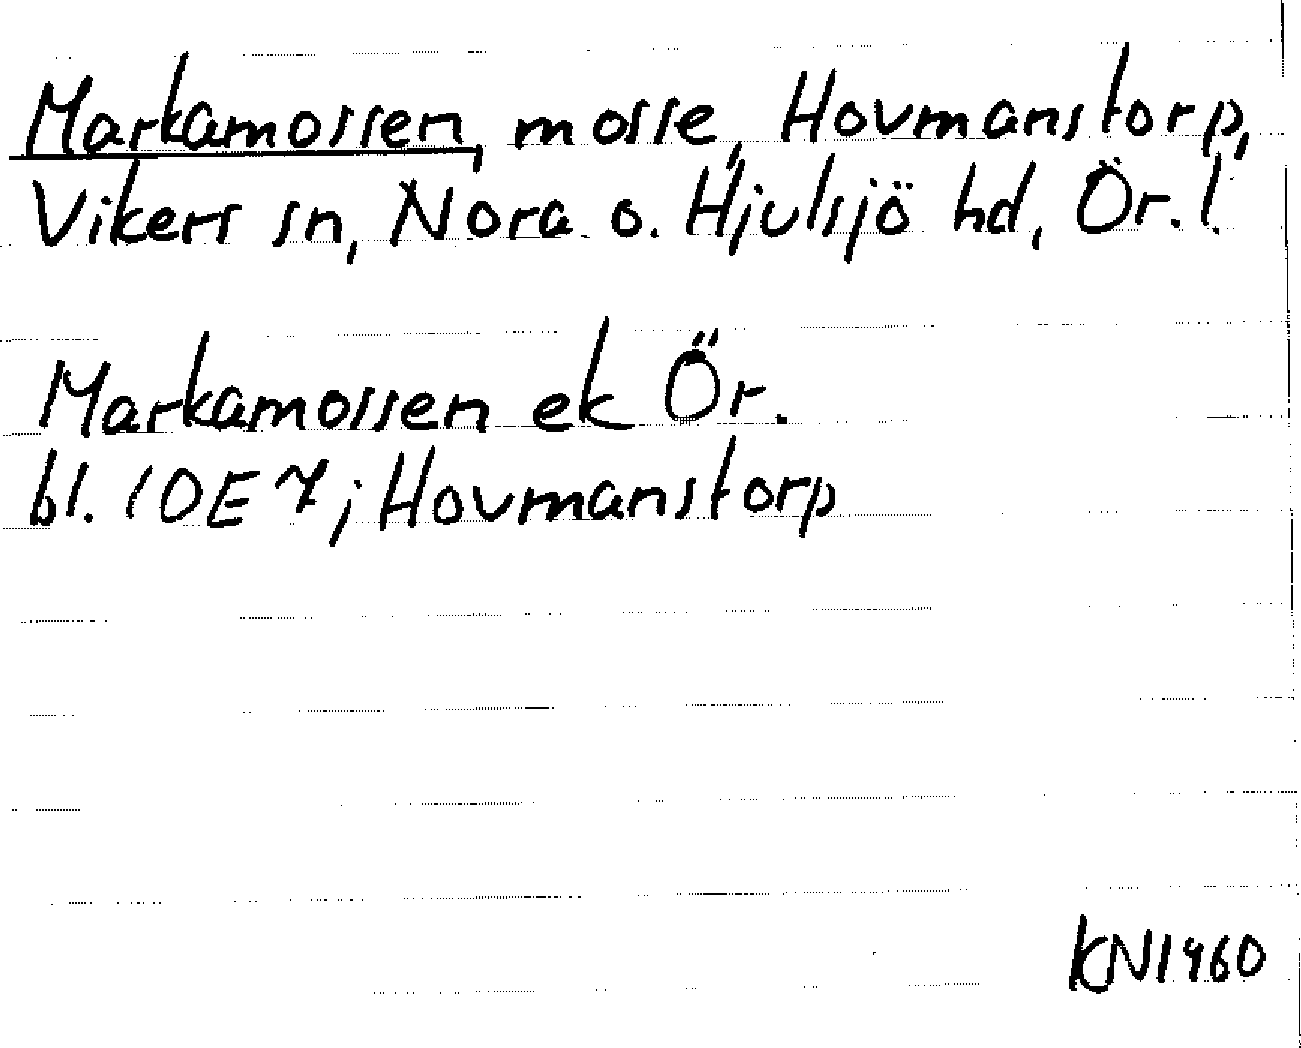 Markamossen, mosse, Hovmanstorp,
Vikers sn, Nora o. Hjulsjö hd, Ör. l.
Markamossen ek Ör.
bl. 10E7; Hovmanstorp
KN1960